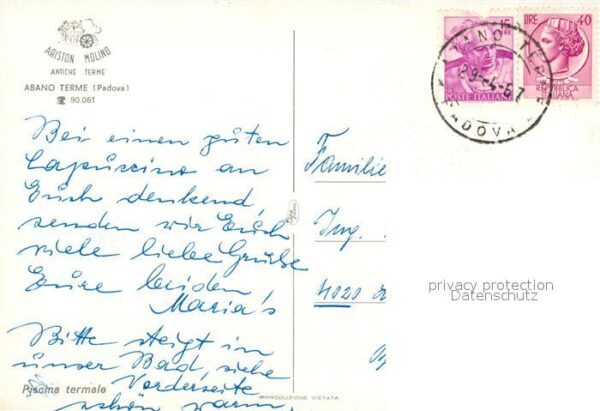 ARISTON MOLINO
ANTICHE TERME
ABANO TERME (Padova)
☎ 90.061
Bei einen guten
Capuccino an
Euch denkend
senden wir Euch
viele liebe Grüße
Eure beiden
Maria's
Bitte steigt in
unser Bad, siehe
Vorderseite
schön warm,
Piscina termale
RIPRODUZIONE VIETATA
15
LIRE
POSTE ITALIANE
LIRE 40
REPUBBLICA
ITALIANA
ABANO TERME
29-4-67
PADOVA
Familie
Ing.
4020
privacy protection
Datenschutz